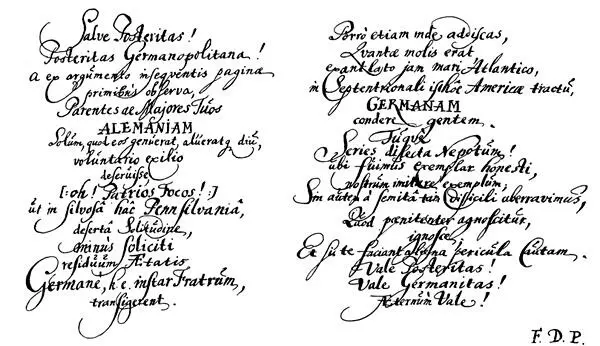 Salve Posteritas!
Posteritas Germanopolitana!
a ex argumento insequentis paginæ
primitus observa,
Parentes ac Majores Tuos
ALEMANIAM
Solum, quod eos genuerat, alueratq diu,
voluntario exilio
deseruisse
[:oh! Patrios Focos!:]
ut in silvosâ hâc Pennsilvaniâ,
desertâ Solitudine,
minus soliciti
residuum Ætatis
Germane, h.e. instar Fratrum,
transigerent.
Porrò etiam inde addiscas,
Quantæ molis erat
exantlato jam mari Atlantico,
in Septentrionali isthôc Americæ tractu,
GERMANAM
condere gentem.
Tuque
Series dilecta Nepotum!
ubi fuimus exemplar honesti,
nostrum imitare exemplum,
Sin autem à semitâ tam difficili aberravimus,
Quod pœnitenter agnoscitur,
ignosce,
Et sic te faciant aliena pericula Cautam.
Vale Posteritas!
Vale Germanitas!
Æternùm Vale!
F. D. P.